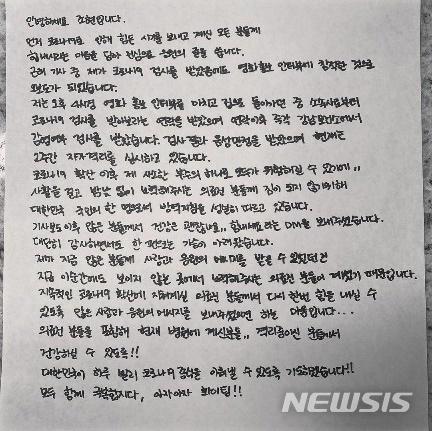 안녕하세요 조현입니다.
먼저 코로나19로 인해 힘든 시기를 보내고 계신 모든 분들께
힘내시라는 마음을 담아 진심으로 응원의 글을 씁니다.
근래 기사 중 제가 코로나19 검사를 받았음에도 영화홍보 인터뷰에 참석한 것으로
보도가 되었습니다.
저는 오후 4시경 영화 홍보 인터뷰를 마치고 집으로 돌아가던 중 소속사로부터
코로나19 검사를 받아보라는 연락을 받았으며 연락이후 즉각 강남보건소에서
감염여부 검사를 받았습니다. 검사결과 음성판정을 받았으며 현재도
2주간 자가격리를 실시하고 있습니다.
코로나19 확산 이후 제 사소한 부주의 하나로 모두가 위험해질 수 있기에..
사활을 걸고 밤낮 없이 노력해주시는 의료진 분들께 짐이 되지 않기위해
대한민국 국민의 한 명으로서 방역지침을 성실히 따르고 있습니다.
기사보도이후 많은 분들께서 건강은 괜찮냐.. 힘내세요라는 DM을 보내주셨습니다.
대단히 감사하면서도 한 편으로는 가슴이 아려왔습니다.
제가 지금 많은 분들께 사랑과 응원의 메시지를 받을 수 있었던건
지금 이순간에도 보이지 않는 곳에서 노력해주시는 의료진 분들이 계셨기 때문입니다.
지속적인 코로나19 확산에 지쳐계실 의료진 분들께서 다시 한번 힘을 내실 수
있도록 많은 사랑과 응원의 메시지를 보내주셨으면 하는 마음입니다...
의료진 분들을 포함해 현재 병원에 계신분들.. 격리중이신 분들께서
건강하실 수 있도록!!
대한민국이 하루 빨리 코로나19 종식을 이뤄낼 수 있도록 기도하겠습니다!!
모두 함께 극복합시다, 아자아자 화이팅!!
NEWSIS